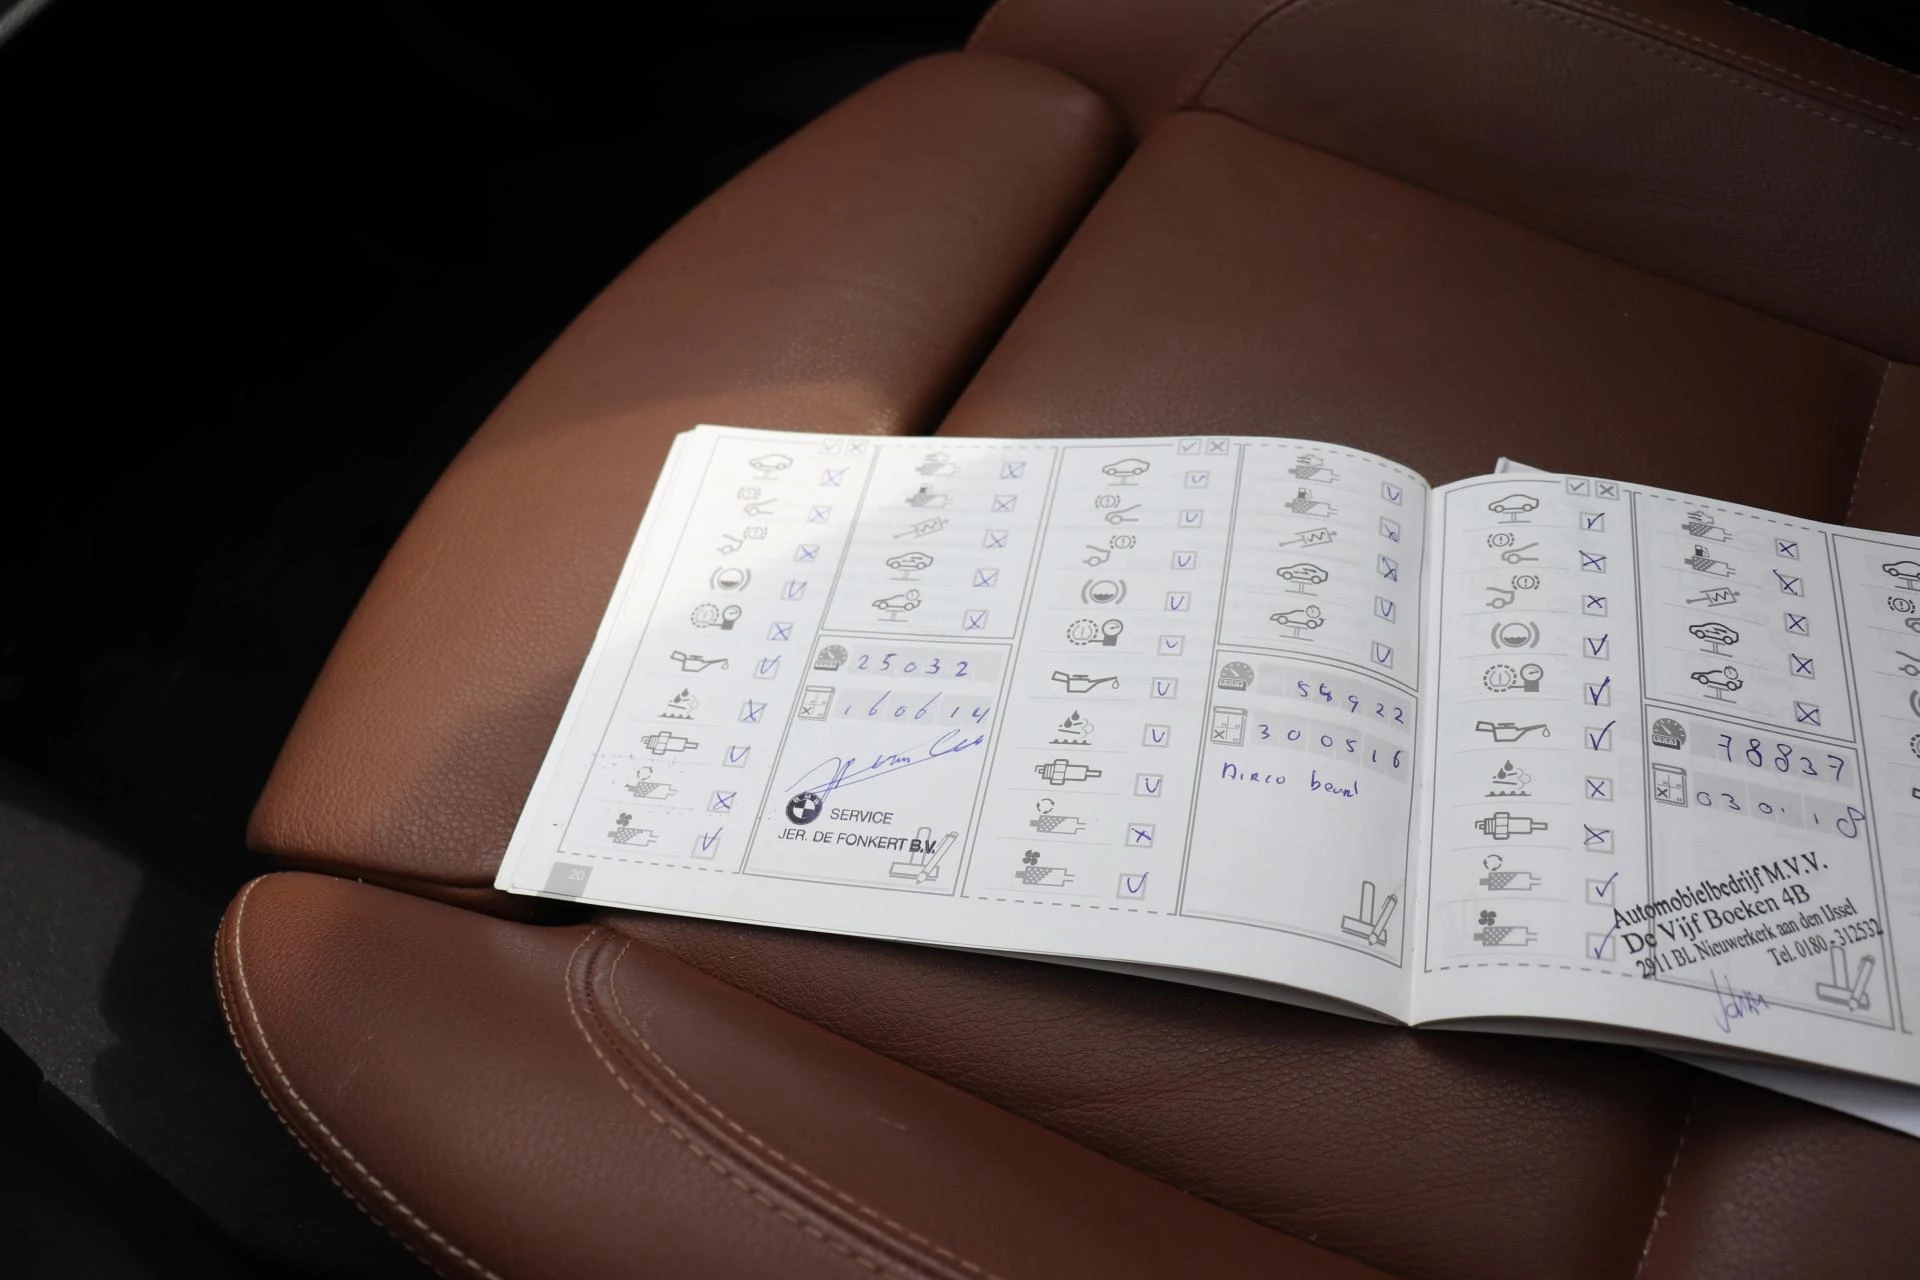 25032
160614
BMW
SERVICE
JER. DE FONKERT B.V.
20
54922
300516
Airco beurt
78837
Automobielbedrijf M.V.V.
De Vijf Boeken 4B
2911 BL Nieuwerkerk aan den IJssel
Tel. 0180 - 312532